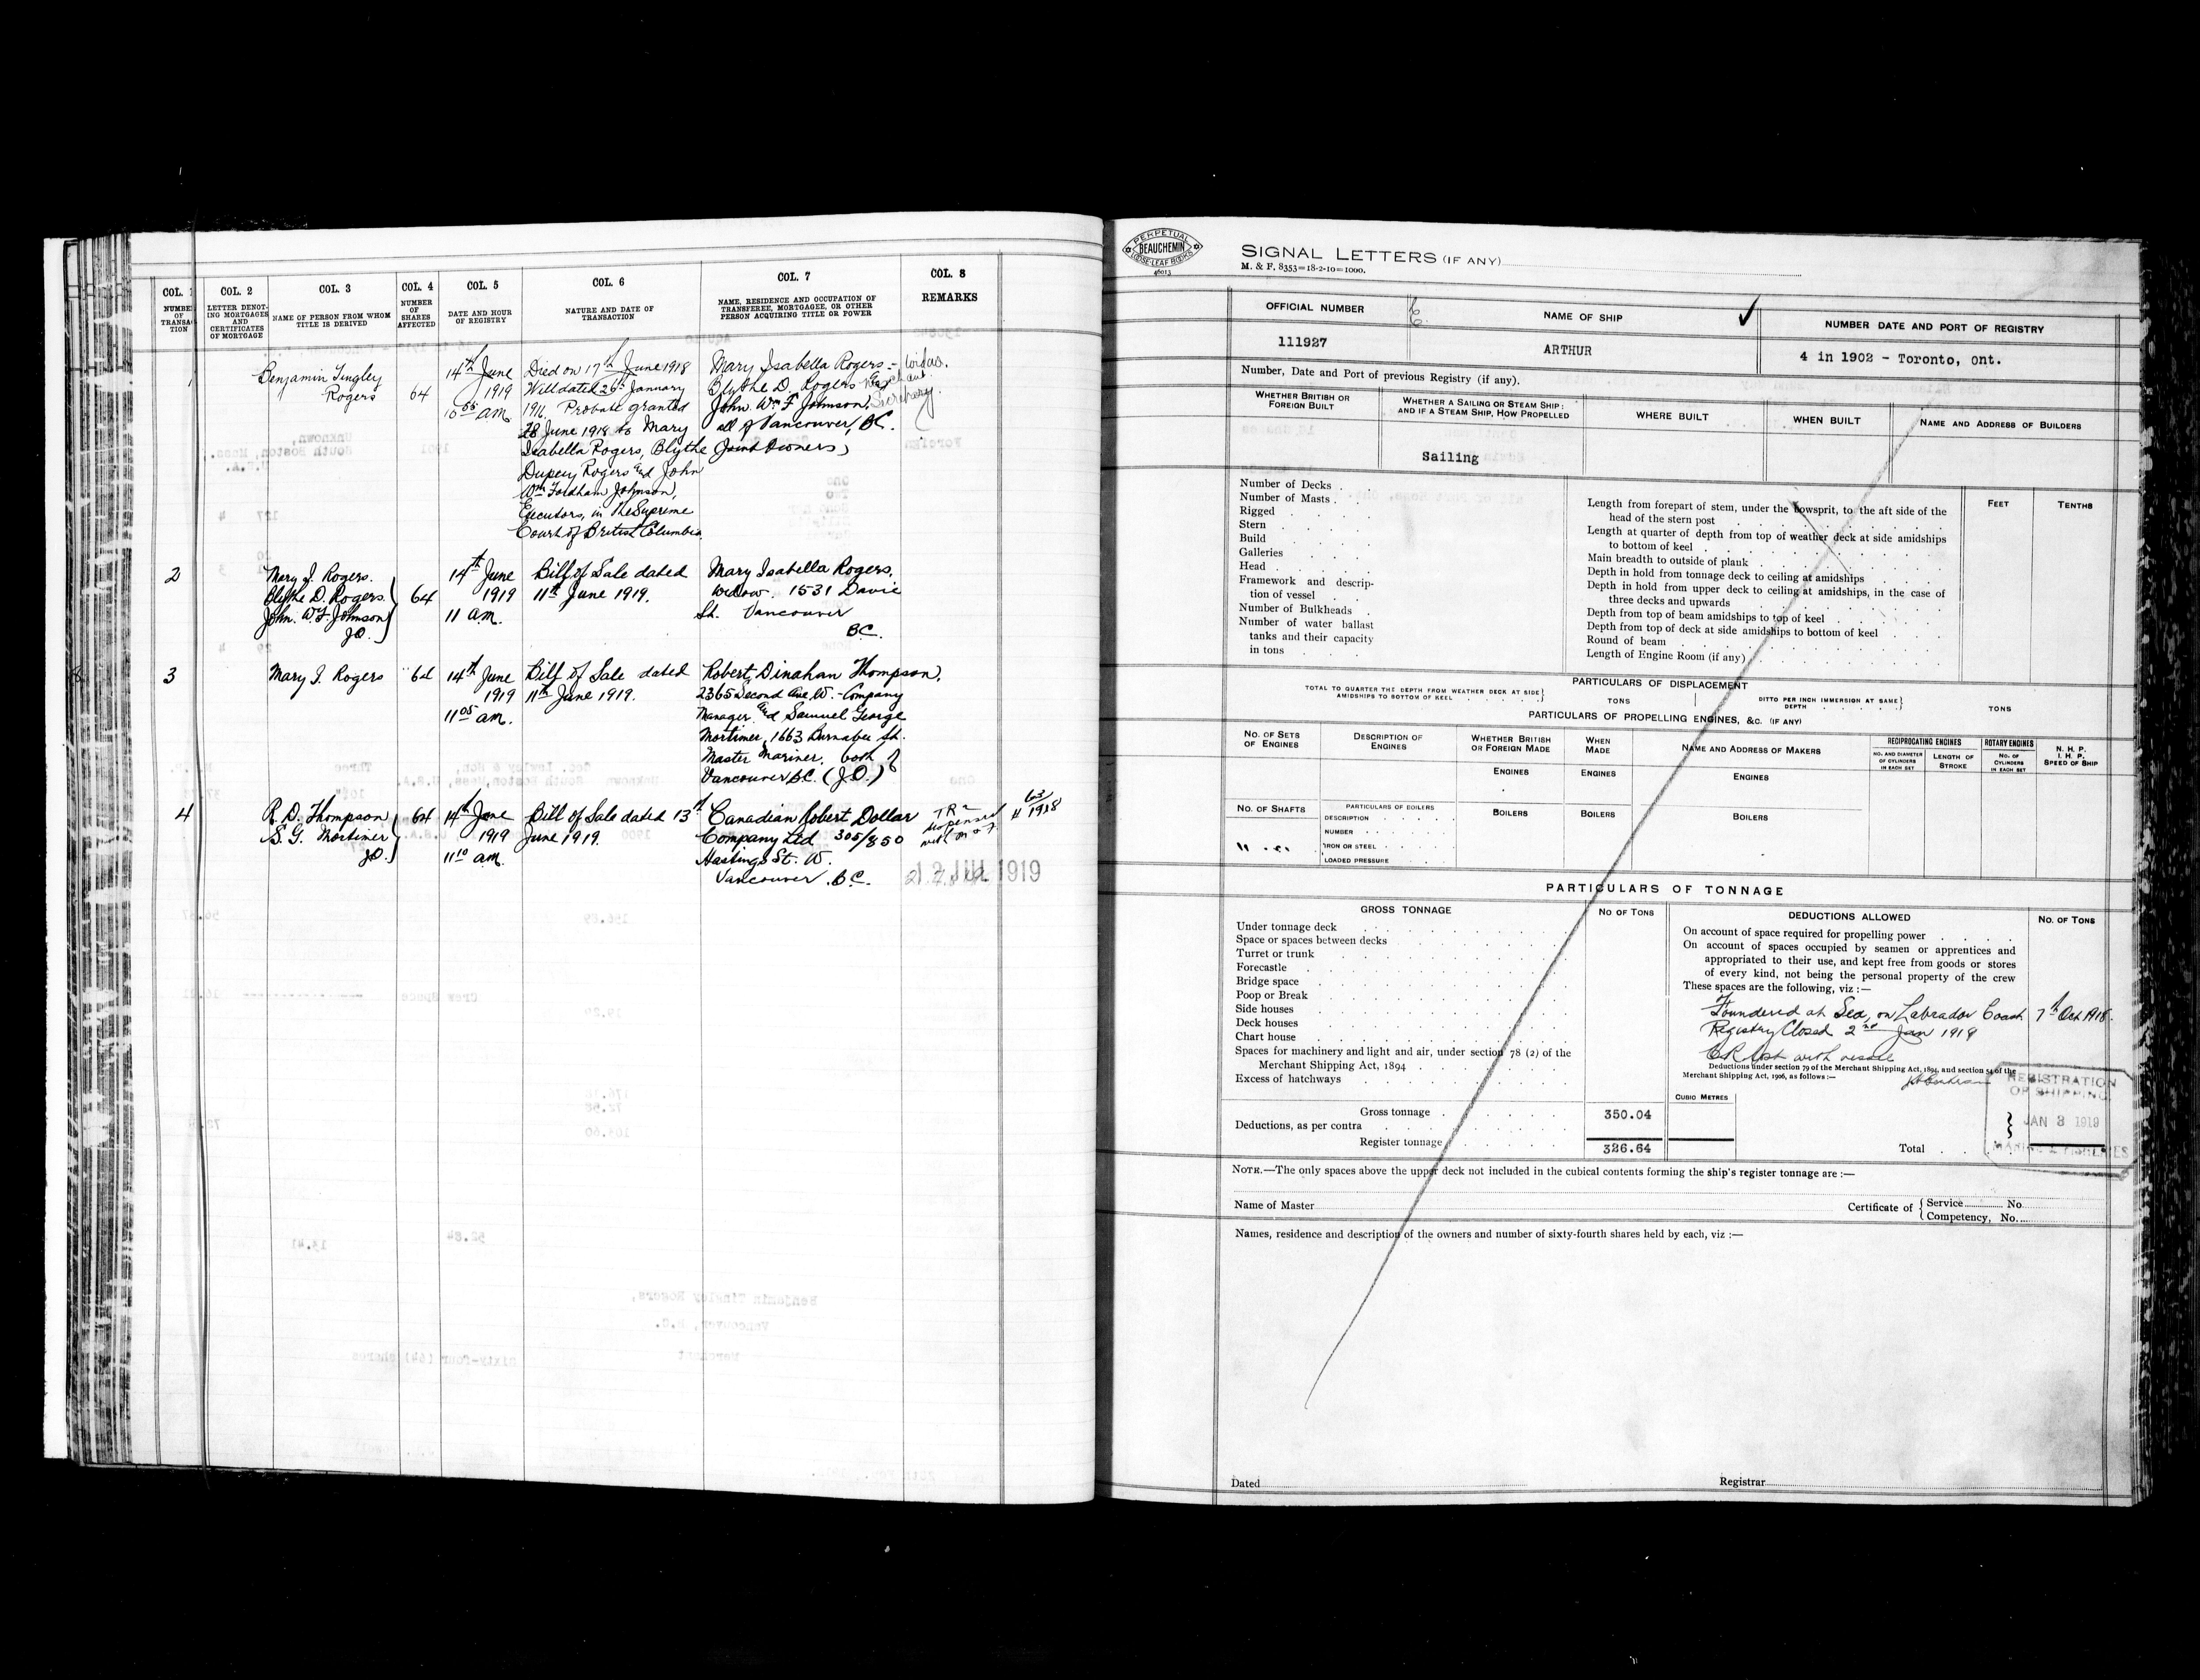 COL. 1
NUMBER OF TRANSACTION
COL. 2
LETTER DENOTING MORTGAGES AND CERTIFICATES OF MORTGAGE
COL. 3
NAME OF PERSON FROM WHOM TITLE IS DERIVED
COL. 4
NUMBER OF SHARES AFFECTED
COL. 5
DATE AND HOUR OF REGISTRY
COL. 6
NATURE AND DATE OF TRANSACTION
COL. 7
NAME, RESIDENCE AND OCCUPATION OF TRANSFEREE, MORTGAGEE, OR OTHER PERSON ACQUIRING TITLE OR POWER
COL. 8
REMARKS
1
Benjamin Tingley
Rogers
64
14th June
1919
10 55 am
Died on 17th June 1918
Will dated 26th January
1916. Probate granted
28 June 1918 to Mary
Isabella Rogers, Blythe
Dupen Rogers and John
Wm Fordham Johnson,
Executors, in The Supreme
Court of British Columbia.
Mary Isabella Rogers = Widow.
Blythe D. Rogers - Merchant
John Wm F Johnson, Secretary.
all of Vancouver, BC.
Joint Owners
2
Mary I. Rogers.
Blythe D. Rogers.
John. W. F. Johnson
JO.
64
14th June
1919
11 am.
Bill of Sale dated
11th June 1919.
Mary Isabella Rogers,
Widow. 1531 Davie
St. Vancouver
BC.
3
Mary I. Rogers
64
14th June
1919
11 05 am.
Bill of Sale dated
11th June 1919.
Robert Dinahan Thompson,
2365 Second Ave W. - Company
Manager and Samuel George
Mortimer, 1663 Barnabee St.
Master Mariner, both of
Vancouver BC. (J.O.)
4
R. D. Thompson
S. G. Mortimer
JO.
64
14th June
1919
11 10 am.
Bill of Sale dated 13th
June 1919.
Canadian Robert Dollar
Company Ltd 305/850
Hastings St. W.
Vancouver, B.C.
TR
dispensed
with
63
1918
12 JUL 1919
PERPETUAL
BEAUCHEMIN
LOOSE-LEAF BOOKS
46013
SIGNAL LETTERS (IF ANY)
M. & F. 8353=18-2-10=1000.
OFFICIAL NUMBER
NAME OF SHIP
NUMBER DATE AND PORT OF REGISTRY
111927
ARTHUR
4 in 1902 - Toronto, Ont.
Number, Date and Port of previous Registry (if any).
WHETHER BRITISH OR FOREIGN BUILT
WHETHER A SAILING OR STEAM SHIP: AND IF A STEAM SHIP, HOW PROPELLED
WHERE BUILT
WHEN BUILT
NAME AND ADDRESS OF BUILDERS
Sailing
Number of Decks
Number of Masts
Rigged
Stern
Build
Galleries
Head
Framework and descrip-
tion of vessel
Number of Bulkheads
Number of water ballast
tanks and their capacity
in tons
FEET
TENTHS
Length from forepart of stem, under the bowsprit, to the aft side of the
head of the stern post
Length at quarter of depth from top of weather deck at side amidships
to bottom of keel
Main breadth to outside of plank
Depth in hold from tonnage deck to ceiling at amidships
Depth in hold from upper deck to ceiling at amidships, in the case of
three decks and upwards
Depth from top of beam amidships to top of keel
Depth from top of deck at side amidships to bottom of keel
Round of beam
Length of Engine Room (if any)
PARTICULARS OF DISPLACEMENT
TOTAL TO QUARTER THE DEPTH FROM WEATHER DECK AT SIDE AMIDSHIPS TO BOTTOM OF KEEL
TONS
DITTO PER INCH IMMERSION AT SAME DEPTH
TONS
PARTICULARS OF PROPELLING ENGINES, &C. (IF ANY)
NO. OF SETS OF ENGINES
DESCRIPTION OF ENGINES
WHETHER BRITISH OR FOREIGN MADE
WHEN MADE
NAME AND ADDRESS OF MAKERS
RECIPROCATING ENGINES
NO. AND DIAMETER OF CYLINDERS IN EACH SET
LENGTH OF STROKE
ROTARY ENGINES
NO. OF CYLINDERS IN EACH SET
N. H. P.
I. H. P.
SPEED OF SHIP
ENGINES
ENGINES
ENGINES
NO. OF SHAFTS
PARTICULARS OF BOILERS
DESCRIPTION
NUMBER
IRON OR STEEL
LOADED PRESSURE
BOILERS
BOILERS
BOILERS
PARTICULARS OF TONNAGE
GROSS TONNAGE
NO OF TONS
DEDUCTIONS ALLOWED
NO. OF TONS
Under tonnage deck
Space or spaces between decks
Turret or trunk
Forecastle
Bridge space
Poop or Break
Side houses
Deck houses
Chart house
Spaces for machinery and light and air, under section 78 (2) of the
Merchant Shipping Act, 1894
Excess of hatchways
Gross tonnage
350.04
Deductions, as per contra
Register tonnage
326.64
On account of space required for propelling power
On account of spaces occupied by seamen or apprentices and
appropriated to their use, and kept free from goods or stores
of every kind, not being the personal property of the crew
These spaces are the following, viz :—
Foundered at Sea, on Labrador Coast 7th Oct 1918.
Registry Closed 2nd Jan 1919
CR lost with vessel
Deductions under section 79 of the Merchant Shipping Act, 1894, and section 54 of the
Merchant Shipping Act, 1906, as follows :—
CUBIC METRES
REGISTRATION
OF SHIPPING.
JAN 3 1919
MARINE & FISHERIES
Total
NOTE.—The only spaces above the upper deck not included in the cubical contents forming the ship's register tonnage are :—
Name of Master
Certificate of
Service
No
Competency, No.
Names, residence and description of the owners and number of sixty-fourth shares held by each, viz :—
Dated
Registrar